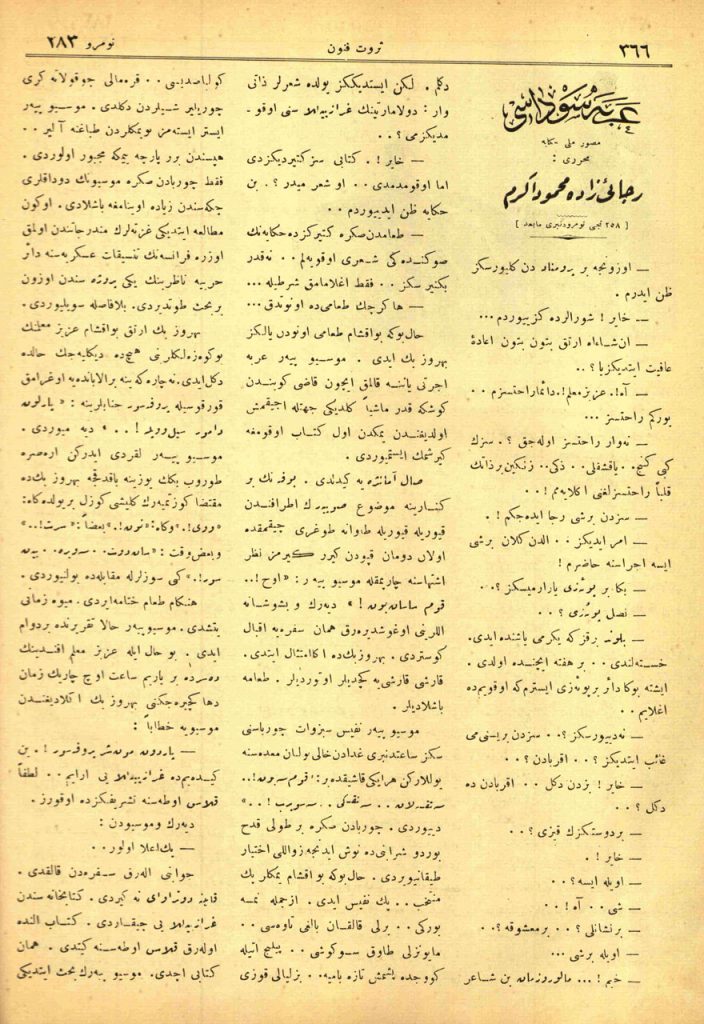 ٣٦٦
ثروت فنون
نومرو ٢٨٣
عربه سوداسی
مصور ملی حکایه
محرری :
رجائی زاده محمود اکرم
[ ٢٥٨ نجی نومرودنبری مابعد ]
— اوزونجه بر پرومناد دن کلیورسکز
ظن ایدرم .
— خایر ! شورالرده کزییوردم ...
— ان شاءالله ارتق بتون بتون اعادهٔ
عافیت ایتدیکزیا ؟ ..
— آه !. عزیز معلم !. دائما راحتسزم . .
یورکم راحتسز ...
— نه وار راحتسز اوله جق ؟ . سزک
کبی کنج . . یاقشقلی . . ذکی . . زنکین بر ذاتک
قلباً راحتسزلغنی اکلایه مم ! . .
— سزدن برشی رجا ایده جکم ! .
— امر ایدیکز . . الدن کلان برشی
ایسه اجراسنه حاضرم !
— بکا بر پوئزی یازارمیسکز ؟ . .
— نصل پوئزی ؟ . .
— بلوند برقز که یکرمی یاشنده ایدی .
خسته لندی . . بر هفته ایچنده اولدی .
ایشته بوکا دائر بر پوئزی ایسترم که اوقویم ده
اغلایم . .
— نه دیورسکز ؟ . . سزدن بریسنی می
غائب ایتدیکز ؟ . . اقربادن ؟ . .
— خایر ! بزدن دکل . . اقربادن ده
دکل ؟ . .
— بر دوستکزک قیزی ؟ . .
— خایر ! .
— اویله ایسه ؟ . .
— شی . . آه ! . .
— بر نشانلی ؟ . . بر معشوقه ؟ . .
— اویله برشی ...
— خیم ! ... مالوروزمان بن شاعر
دکلم . لکن ایستدیککز یولده شعرلر ذاتی
وار : دولامارتینک غرازییه لا سنی اوقو .
مدیکزمی ؟ . .
— خایر ! . کتابی سز کتیردیکزدی
اما اوقومه مدی . . او شعر میدر ؟ . بن
حکایه ظن ایدییوردم . .
— طعامدن صکره کتیرکزده حکایه نک
صوکنده کی شعری اوقویه لم . . نه قدر
بکنیرسکز . . فقط اغلامامق شرطیله ...
— ها کرچک طعامی ده اونوتدق ...
حال بوکه بو اقشام طعامی اونودن یالکز
بهروز بک ایدی . موسیو پییر عربه
اجرتی یاننه قالمق ایچون قاضی کوینندن
کوشکه قدر ماشیاً کلدیکی جهتله اجیقمش
اولدیغندن یمکدن اول کتاب اوقومغه
کیرشمک ایستمیوردی .
صال آمانژه یه کیدلدی . بوفه نک بر
کنارینه موضوع صوپیه رک اطرافندن
قیوریله قیوریله طاوانه طوغری چیقمقده
اولان دومان قپودن کیرر کیرمز نظر
اشتهاسنه چارپمقله موسیو پییر : « اوح ! ..
قوم ساسان بون ! » دیه رک و بشوشانه
اللرینی اوغوشدیره رق همان سفره یه اقبال
کوستردی . بهروز بک ده اکا امتثال ایتدی .
قارشی قارشی یه کچدیلر اوتوردیلر . طعامه
باشلادیلر .
موسیو پییر نفیس سبزوات چورباسی
سکز ساعتدنبری غدادن خالی بولنان معده سنه
یوللارکن هر ایکی قاشیقده بر : « قوم سه بون ! . .
دییوردی . چوربادن صکره بر طولی قدح
بوردو شرابی ده نوش ایدنجه زواللی اختیار
طیقانیویردی . حال بوکه بو اقشام یمکلر پک
منتخب . . پک نفیس ایدی . ازجمله نمسه
بورکی . . برلی قالقان بالغی تاوه سی . .
مایونزلی طاوق سوکوشی . . پیلیج اتیله
کووجده پشمش تازه بامیه . . بزلیالی قوزی
کولباصدیسی . . قره مالی چوقولاته کری
چوریایر شیلردن دکلدی . موسیو پییر
ایستر ایسته من بو یمکلردن طباغنه آلیر . .
هپسندن برر پارچه ییمکه مجبور اولوردی .
فقط چوربادن صکره موسیونک دوداقلری
چکه سندن زیاده اوینامغه باشلادی . اوکون
مطالعه ایتدیکی غزته لرک مندرجاتندن اولمق
اوزره فرانسه نک تنسیقات عسکریه سنه دائر
حربیه ناظرینک یکی پروژه سندن اوزون
بر بحث طوتدیردی . بلافاصله سویلیوردی .
بهروز بک ارتق بو اقشام عزیز معلمنک
بوکوه زه لکلرینی هیچ ده دیکلیه جک حالده
دکل ایدی . نه چاره که ینه بر الایانده یه اوغرامق
قورقوسیله پروفسور جنابلرینه : « پارلون
دامور سیل وو پله ! . . » دیه میوردی .
موسیو پییر لقردی ایدرکن اره صره
طوروب بکک یوزینه باقدقجه بهروز بک ده
مقتضا کوزتمیه رک کلیشی کوزل بر یولده کاه :
« ووی ! . » وکاه : « نون ! . » بعضاً : « سرت ! . . »
هنکام طعام ختامه ایردی . میوه زمانی
یتشدی . موسیو پییر حالا تقریرنده بردوام
ایدی . بو حال ایله عزیز معلم افندینک
ده سه رده بر یاریم ساعت اوچ چاریک زمان
دها کچیره جکنی بهروز بک اکلادیغندن
موسیویه خطاباً :
— پاردون مون شر پروفسور ! . بن
کیده یم ده غرازییه لا یی ارایم . . لطفاً
قلاس اوطه سنه تشریفکزده اوقورز .
دیه رک و موسیودن :
— پک اعلا اولور . .
جوابنی اله رق سفره دن قالقدی .
قابینه دوتراوای نه کیردی . کتابخانه سندن
غرازییه لا یی چیقاردی . کتاب النده
اوله رق قلاس اوطه سنه کیتدی . همان
کتابی اچدی . موسیو پییرک بحث ایتدیکی